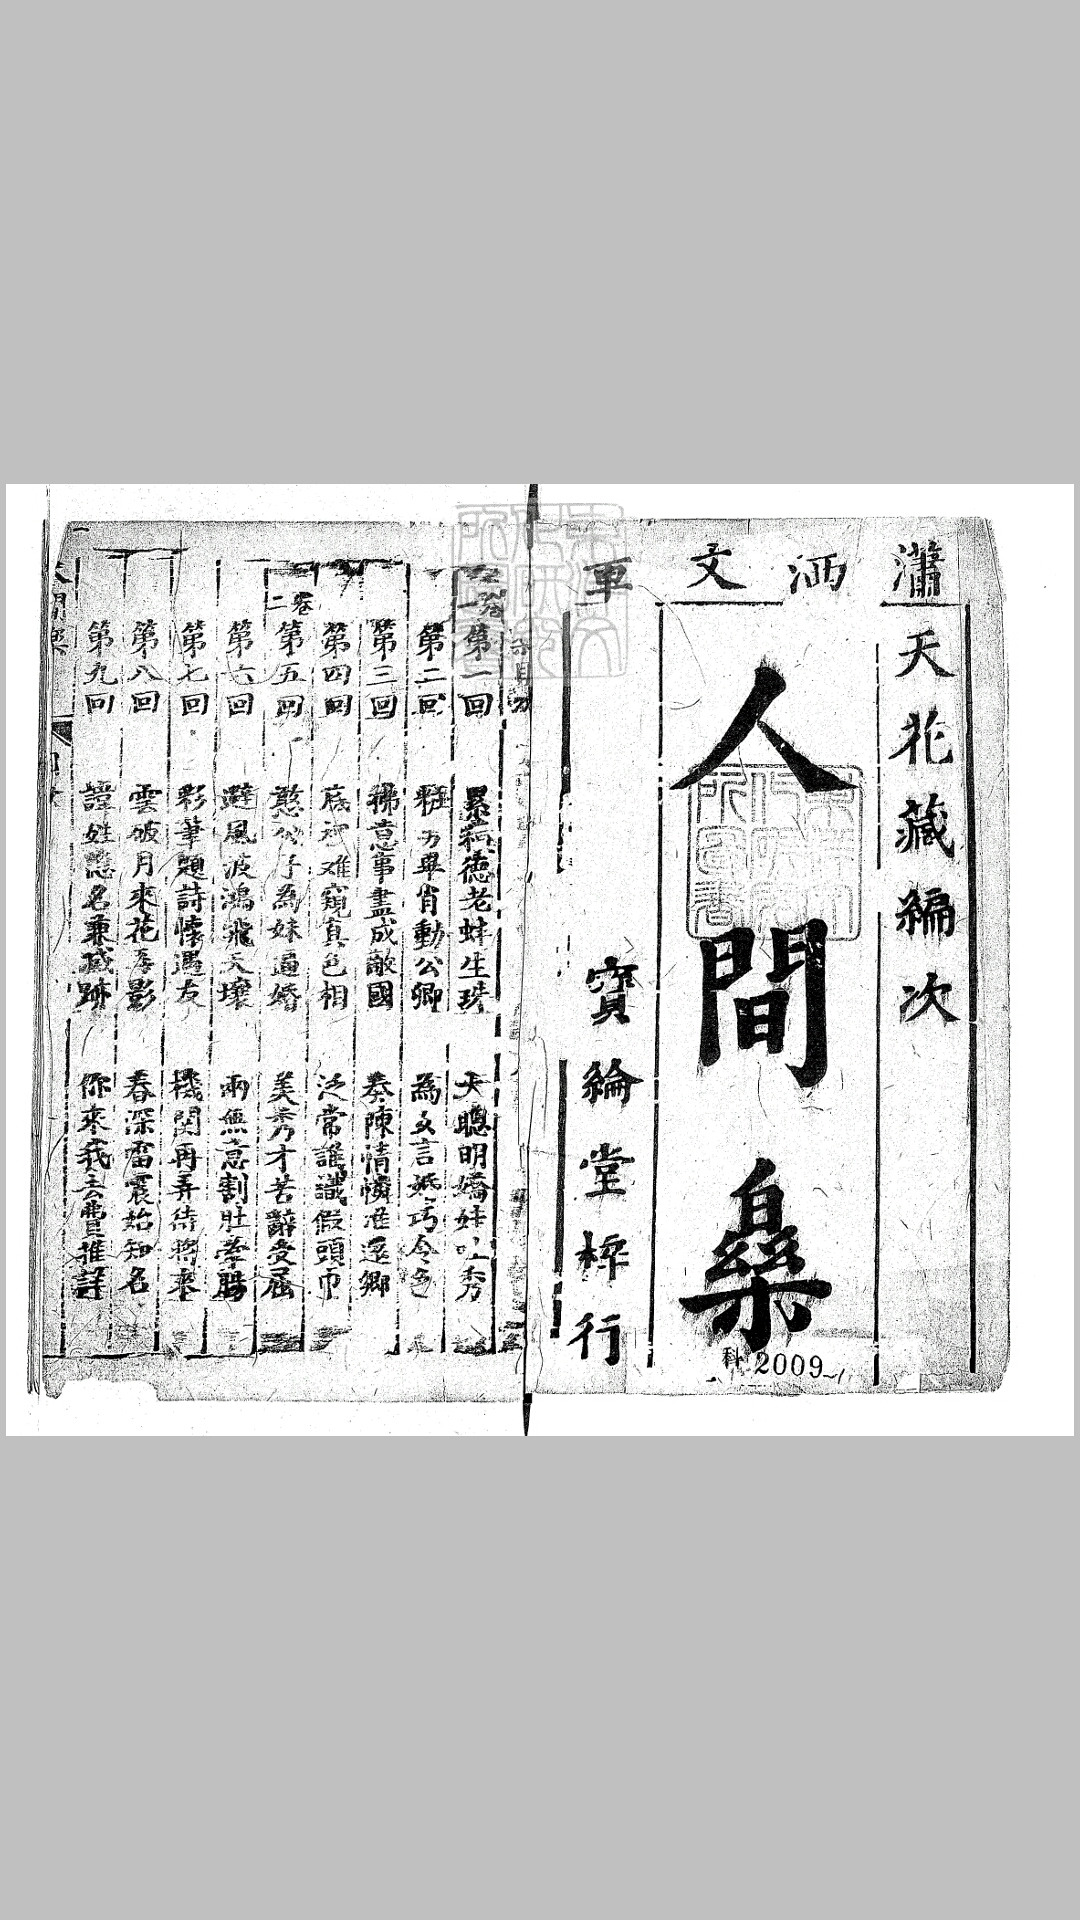 瀟洒文章
天花藏編次
人間樂
寶綸堂梓行
科 2009
一卷
第一回 累積德老蚌生珠 天聰明嬌娃吐秀
第二回 粧男畢肖動公卿 為女言婚巧令色
第三回 拂意事盡成敵國 奏陳情憐准還鄉
第四回 底裡难窺真色相 泛常誰識假頭巾
二卷
第五回 憨公子為妹逼婚 美秀才苦辭受屈
第六回 避風波鴻飛天壤 兩無意割肚牽腸
第七回 彩筆題詩懷遇友 機関再弄待將來
第八回 雲破月來花弄影 春深雷震始知名
第九回 證姓隱名兼藏跡 你來我去費推詳